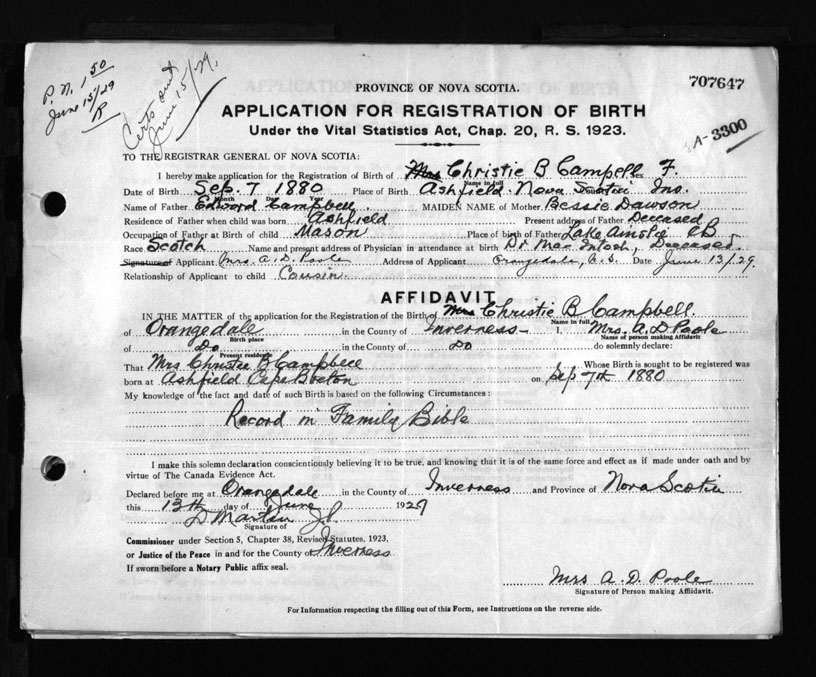 P.N. 1.50
June 15/29
R
Certs out
June 15/29.
PROVINCE OF NOVA SCOTIA.
707647
APPLICATION FOR REGISTRATION OF BIRTH
Under the Vital Statistics Act, Chap. 20, R. S. 1923.
A-3300
TO THE REGISTRAR GENERAL OF NOVA SCOTIA:
I hereby make application for the Registration of Birth of Mrs Christie B Campell ex F.
Name in full
Date of Birth Sep. 7 1880 Place of Birth Ashfield Nova Scotia Inv.
Month Day Year
Name of Father Edward Campbell MAIDEN NAME of Mother Bessie Dawson
Residence of Father when child was born Ashfield Present address of Father Deceased
Occupation of Father at Birth of child Mason Place of birth of Father Lake Ainslie CB
Race Scotch Name and present address of Physician in attendance at birth Dr Mac Intosh, Deceased.
Signature of Applicant Mrs. A. D. Poole Address of Applicant Orangedale, N.S. Date June 13/29.
Relationship of Applicant to child Cousin
AFFIDAVIT
IN THE MATTER of the application for the Registration of the Birth of Mrs Christie B Campbell
Name in full
of Orangedale in the County of Inverness I, Mrs. A. D Poole
Birth place Name of person making Affidavit
of Do in the County of Do do solemnly declare:
Present residence
That Mrs Christie B Campbell Whose Birth is sought to be registered was
born at Ashfield Cape Breton on Sep 7th 1880
My knowledge of the fact and date of such Birth is based on the following Circumstances:
Record in Family Bible
I make this solemn declaration conscientiously believing it to be true, and knowing that it is of the same force and effect as if made under oath and by
virtue of The Canada Evidence Act.
Declared before me at Orangedale in the County of Inverness and Province of Nova Scotia
this 13th day of June 1929
D Martin J.P.
Signature of
Commissioner under Section 5, Chapter 38, Revised Statutes, 1923,
or Justice of the Peace in and for the County of Inverness
If sworn before a Notary Public affix seal.
Mrs A. D. Poole
Signature of Person making Affidavit.
For Information respecting the filling out of this Form, see Instructions on the reverse side.